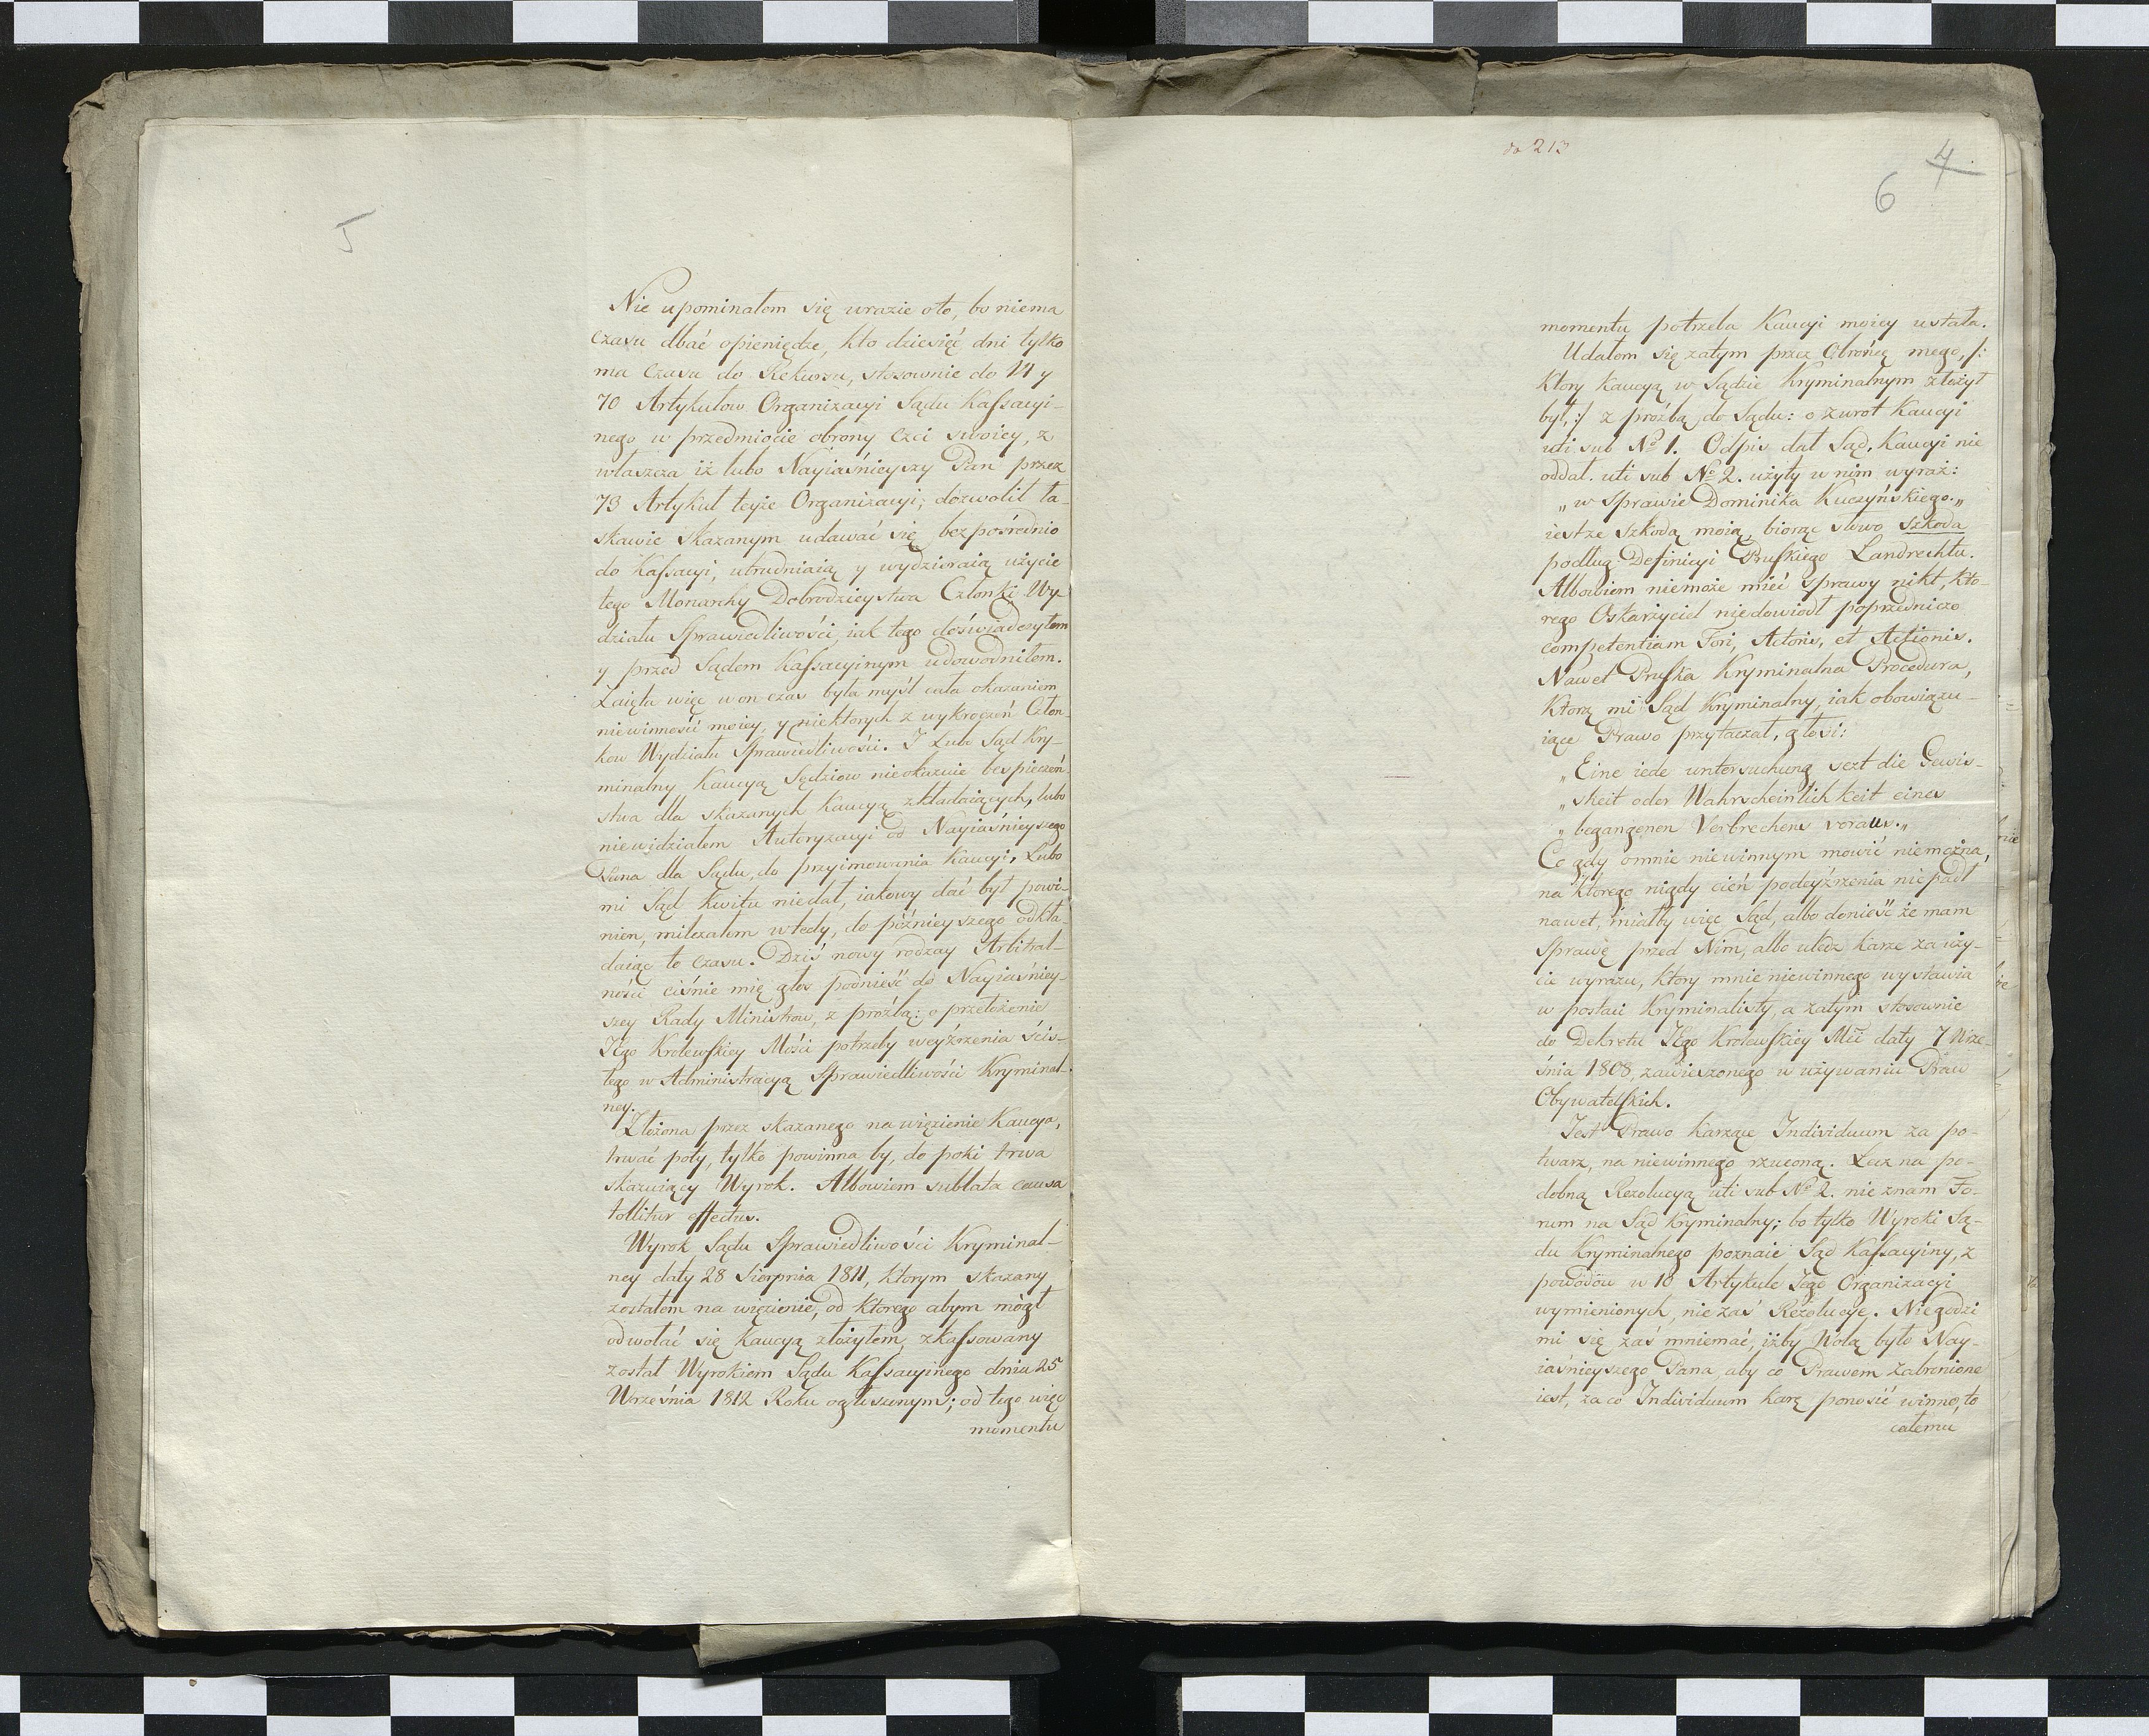 5
Nie upominałem się wrazie oto, bo niema
Czasu dbać opieniędze, kto dziesięć dni tylko
ma Czasu do Rekursu, stosownie do 14 y
70 Artykułow Organizacyi Sądu Kassacyi-
nego w przedmiocie obrony Czci swoiey, z
własza iż lubo Nayiaśnieyszy Pan przez
73 Artykuł teyże Organizacyi, dozwolił ła-
skawie Skazanym udawać się bezpośrednio
do Kassacyi, utrudniaią y wydzieraią użycie
tego Monarchy Dobrodzieystwa Członki Wy-
działu Sprawiedliwości, iak tego doświadczyłem
y przed Sądem Kassacyinym udowodniłem.
Zaięta więc won czas była myśl cała okazaniem
niewinności moiey, y niektorych z wykroczeń Człon-
kow Wydziału Sprawiedliwości. I Lubo Sąd Kry-
minalny Kaucyą Sędziow nieokazuie bespieczeń-
stwa dla skazanych Kaucyą składaiących, lubo
niewidziałem Autoryzacyi od Nayiaśnieyszego
Pana dla Sądu, do przyimowania Kaucyi, Lubo
mi Sąd Kwitu niedał, iakowy dać był powi-
nien, milczałem wtedy, do pożnieyszego odkła-
daiąc to Czasu. Dziś nowy rodzay Arbitral-
ności ciśnie mię głos podnieść do Nayiaśniey-
szey Rady Ministrow, z prożbą: o przełożenie
JEgo Krolewskiey Mości potrzeby weyźrzenia ścis-
łego w Administracyą Sprawiedliwości Kryminal-
ney.
Złożona przez skazanego na więzienie Kaucya,
trwać poty, tylko powinna by, do poki trwa
skazuiący Wyrok. Albowiem sublata causa
tollitur effectus.
Wyrok Sądu Sprawiedliwości Kryminal-
ney daty 28 Sierpnia 1811, ktorym skazany
zostałem na więzienie, od ktorego abym mógł
odwołać się Kaucyą złożyłem, zkassowany
został Wyrokiem Sądu Kassacyinego dnia 25
Września 1812 Roku ogłoszonym; od tego więc
momentu
do 213
4
6
momentu potrzeba Kaucyi moiey ustała.
Udałem się zatym przez Obrońcę mego, /:
Ktory Kaucyą w Sądzie Kryminalnym złożył
był, :/ z proźbą do Sądu: o zwrot Kaucyi
uti sub No 1. Odpis dał Sąd, Kaucyi nie
oddał. uti sub No 2. użyty w nim wyraz:
„w Sprawie Dominika Kuczyńskiego.„
iest ze szkodą moią, biorąc słowo szkoda
podług Definicyi Pruskiego Landrechtu.
Albowiem niemoże mieć sprawy nikt, kto-
rego Oskarżyciel niedowiodł poprzedniczo
competentiam Fori, Actoris, et Actionis.
Nawet Pruska Kryminalna Procedura,
Ktorą mi Sąd Kryminalny, iak obowiązu-
iące Prawo przytaczał, głosi:
„Eine iede untersuchung sezt die Gewis-
„skeit oder Wahrscheinlichkeit eines
„begangenen Verbrechens voraus.„
Co gdy omnie niewinnym mowić niemożna,
na ktorego nigdy cień podeyźrzenia niepadł
nawet, miałby więc Sąd, albo donieść że mam
Sprawę przed Nim, albo uledz karze za uży-
cie wyrazu, ktory mnie niewinnego wystawia
w postaci Kryminalisty, a zatym stosownie
do Dekretu JEgo Krolewskiey Mci daty 7 Wrze-
śnia 1808, zawieszonego w używaniu Praw
Obywatelskich.
Jest Prawo karzące Individuum za po-
twarz, na niewinnego rzuconą. Lecz na po-
dobną Rezolucyą uti sub No 2. nie znam Fo-
rum na Sąd Kryminalny; bo tylko Wyroki Są-
du Kryminalnego poznaie Sąd Kassacyiny, z
powodow w 10 Artykule Jego Organizacyi
wymienionych, nie zaś Rezolucye. Niegodzi
mi się zaś mniemać, iżby Wolą było Nay-
iaśnieyszego Pana, aby co Prawem zabronione
iest, za co Individuum karę ponosić winno, to
całemu